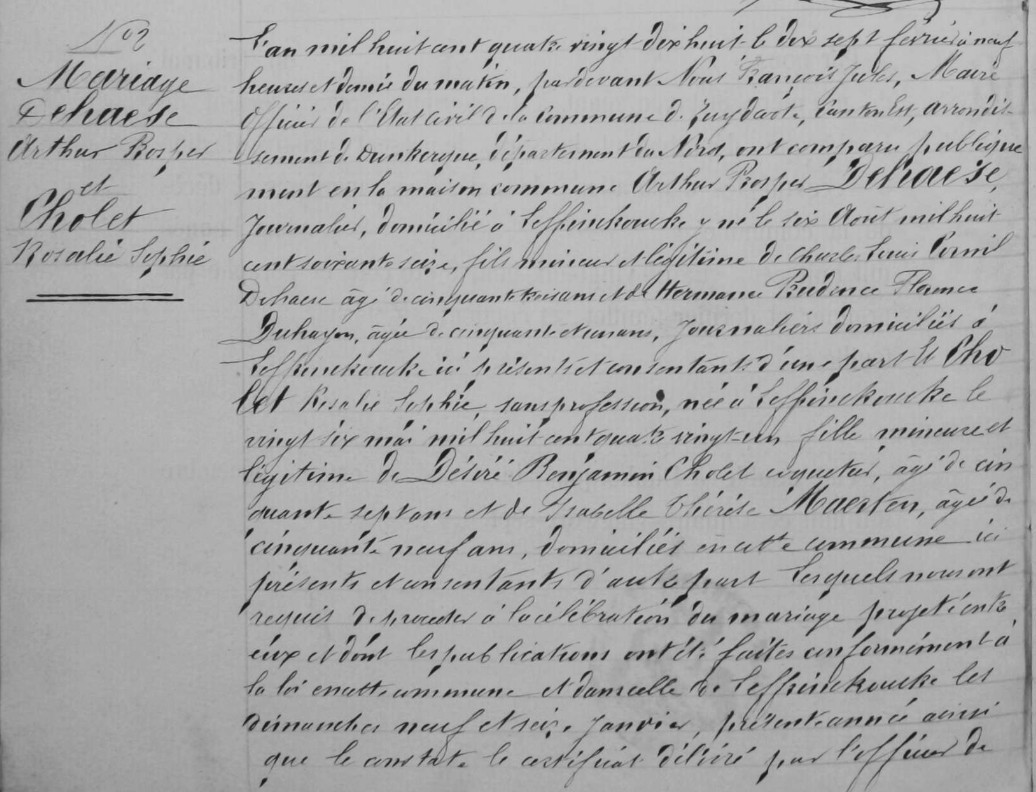 No 3
Mariage
Dehaese
Arthur Prosper
et
Cholet
Rosalie Sophie
L'an mil huit cent quatre vingt dix huit le dix sept février à neuf
heures et demie du matin, pardevant Nous François Jules, Maire
Officier de l'Etat civil de la Commune de Zuydcoote, Canton Est, arrondis-
sement de Dunkerque, département du Nord, ont comparu publique
ment en la maison commune Arthur Prosper Dehaese,
Journalier, domicilié à Leffrinckoucke y né le six Août mil huit
cent soixante seize, fils mineur et légitime de Charles Louis Cornil
Dehaese âgé de cinquante trois ans et de Hermance Prudence Florence
Duhayon, âgée de cinquante et un ans, Journaliers domiciliés à
Leffrinckoucke ici présents et consentants d'une part Et Cho
let Rosalie Sophie, sans profession, née à Leffrinckoucke le
vingt six mai mil huit cent quatre vingt-un fille mineure et
légitime de Désiré Benjamin Cholet coquetier, âgé de cin
quante sept ans et de Isabelle Thérèse Maerten, âgée de
cinquante neuf ans, domiciliés en cette commune ici
présents et consentants d'autre part Lesquels nous ont
requis de procéder à la célébration du mariage projeté entre
eux et dont les publications ont été faites conformément à
la loi en cette commune et dans celle de Leffrinckoucke les
dimanches neuf et seize Janvier, présente année ainsi
que le constate le certificat délivré par l'officier de